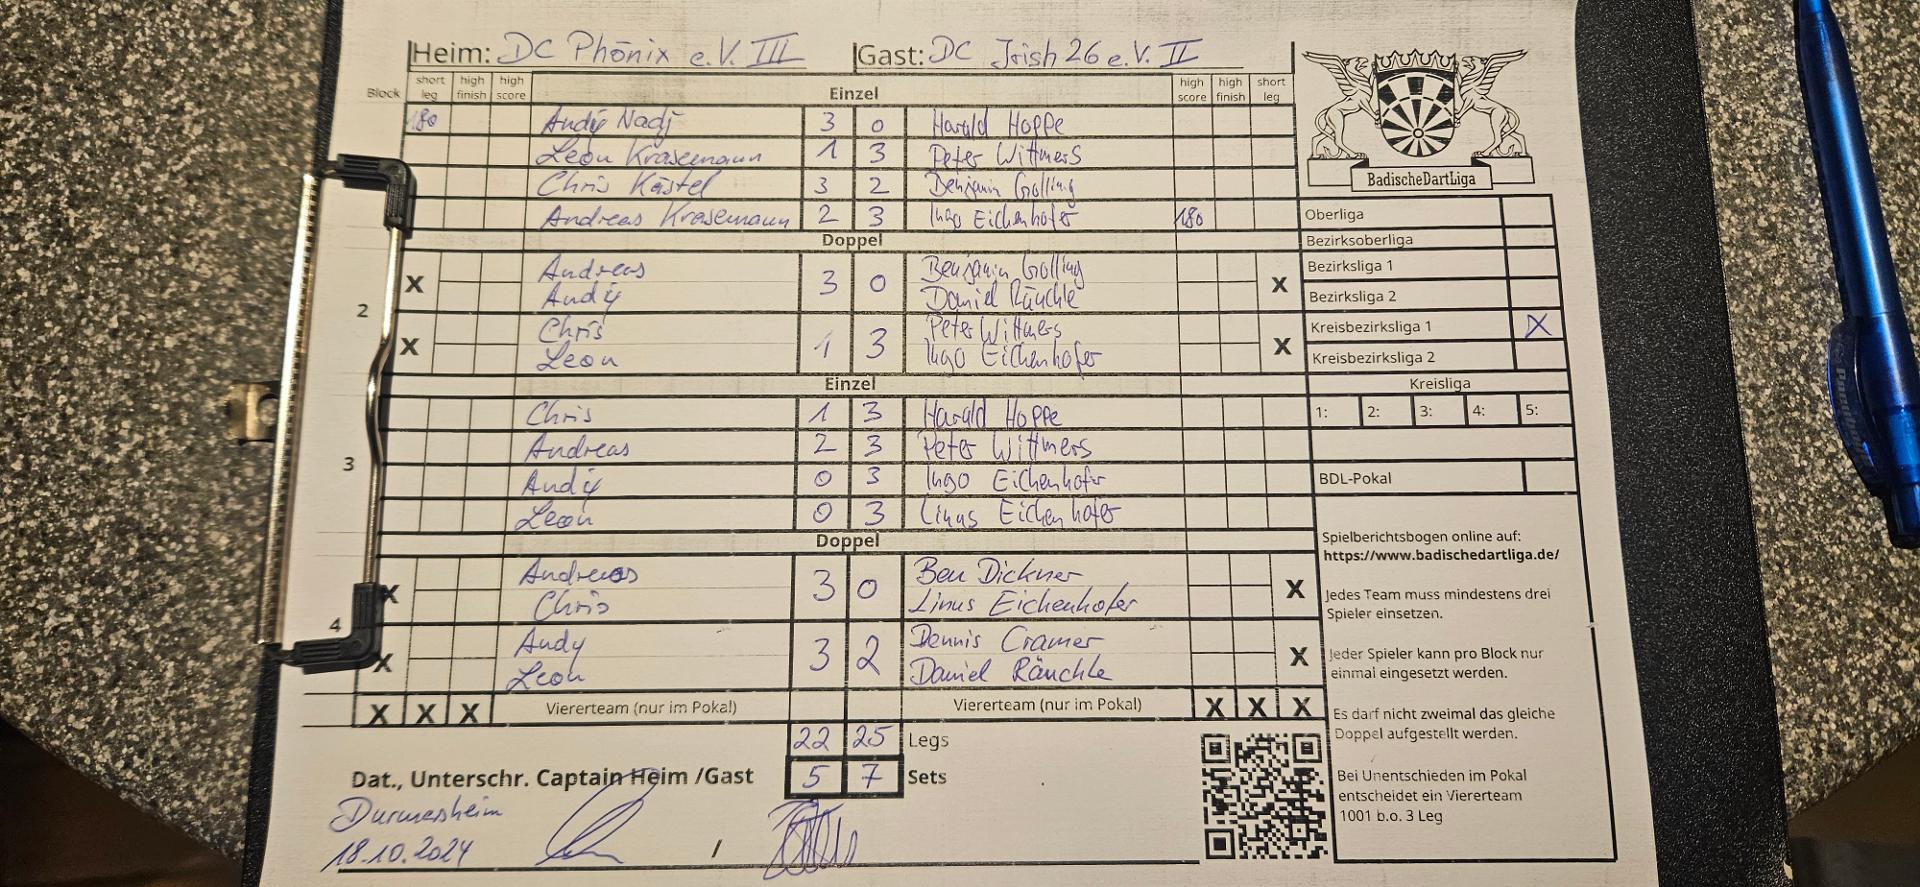 Heim: DC Phönix e.V. III Gast: DC Irish 26 e.V. II
Block short leg high finish high score Einzel high score high finish short leg
180 Andy Nadj 3 0 Harald Hoppe
Leon Krasemann 1 3 Peter Wittmers
Chris Kästel 3 2 Benjamin Golling
Andreas Krasemann 2 3 Ingo Eichenhofer 180
Doppel
2
X Andreas 3 0 Benjamin Golling X
Andy Daniel Räuchle
X Chris 1 3 Peter Wittmers X
Leon Ingo Eichenhofer
Einzel
3
Chris 1 3 Harald Hoppe
Andreas 2 3 Peter Wittmers
Andy 0 3 Ingo Eichenhofer
Leon 0 3 Linus Eichenhofer
Doppel
4
X Andreas 3 0 Ben Dickner X
Chris Linus Eichenhofer
X Andy 3 2 Dennis Cramer X
Leon Daniel Räuchle
X X X Viererteam (nur im Pokal) Viererteam (nur im Pokal) X X X
22 25 Legs
Dat., Unterschr. Captain Heim /Gast 5 7 Sets
Durmersheim
18.10.2024 /
BadischeDartLiga
Oberliga
Bezirksoberliga
Bezirksliga 1
Bezirksliga 2
Kreisbezirksliga 1 X
Kreisbezirksliga 2
Kreisliga
1: 2: 3: 4: 5:
BDL-Pokal
Spielberichtsbogen online auf:
https://www.badischedartliga.de/
Jedes Team muss mindestens drei
Spieler einsetzen.
Jeder Spieler kann pro Block nur
einmal eingesetzt werden.
Es darf nicht zweimal das gleiche
Doppel aufgestellt werden.
Bei Unentschieden im Pokal
entscheidet ein Viererteam
1001 b.o. 3 Leg